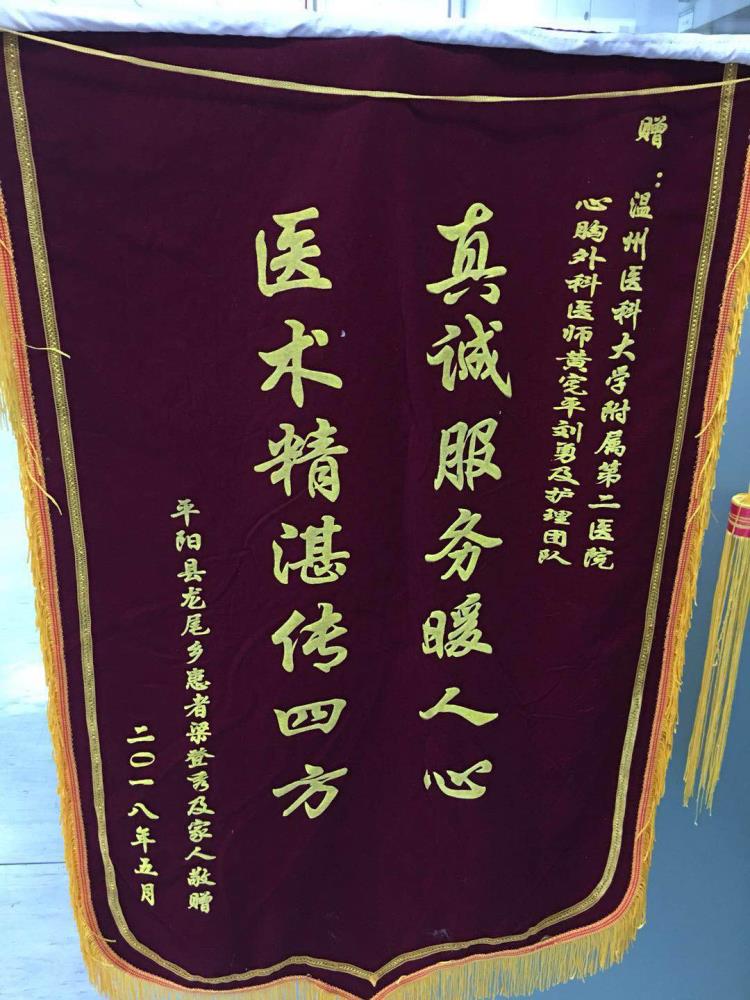 赠：温州医科大学附属第二医院
心胸外科医师黄定平刘勇及护理团队
真诚服务暖人心
医术精湛传四方
平阳县龙尾乡患者梁登秀及家人敬赠
二〇一八年五月